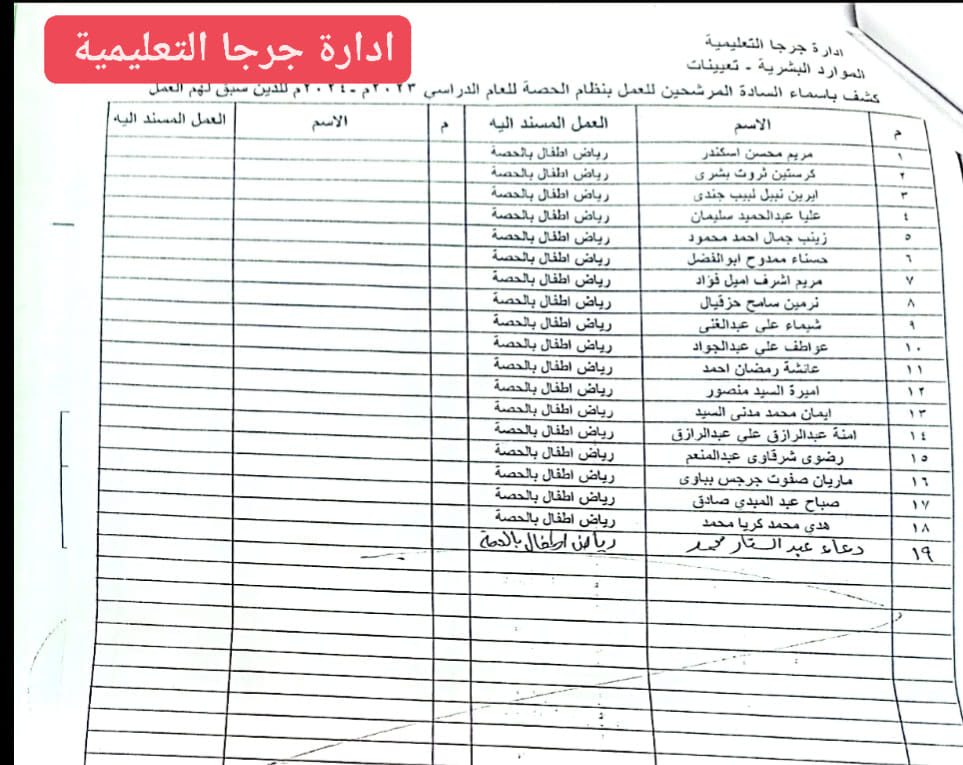 ادارة جرجا التعليمية
ادارة جرجا التعليمية
الموارد البشرية - تعيينات
كشف باسماء السادة المرشحين للعمل بنظام الحصة للعام الدراسي ٢٠٢٣م - ٢٠٢٤م للذين سبق لهم العمل
م الاسم العمل المسند اليه م الاسم العمل المسند اليه
١ مريم محسن اسكندر رياض اطفال بالحصة
٢ كرستين ثروت بشرى رياض اطفال بالحصة
٣ ايرين نبيل لبيب جندى رياض اطفال بالحصة
٤ عليا عبدالحميد سليمان رياض اطفال بالحصة
٥ زينب جمال احمد محمود رياض اطفال بالحصة
٦ حسناء ممدوح ابوالفضل رياض اطفال بالحصة
٧ مريم اشرف اميل فؤاد رياض اطفال بالحصة
٨ نرمين سامح حزقيال رياض اطفال بالحصة
٩ شيماء على عبدالغنى رياض اطفال بالحصة
١٠ عواطف علي عبدالجواد رياض اطفال بالحصة
١١ عائشة رمضان احمد رياض اطفال بالحصة
١٢ اميرة السيد منصور رياض اطفال بالحصة
١٣ ايمان محمد مدنى السيد رياض اطفال بالحصة
١٤ امنة عبدالرازق علي عبدالرازق رياض اطفال بالحصة
١٥ رضوى شرقاوى عبدالمنعم رياض اطفال بالحصة
١٦ ماريان صفوت جرجس بباوى رياض اطفال بالحصة
١٧ صباح عبد المبدي صادق رياض اطفال بالحصة
١٨ هدى محمد كريا محمد رياض اطفال بالحصة
١٩ دعاء عبد الستار محمد رياض اطفال بالحصة